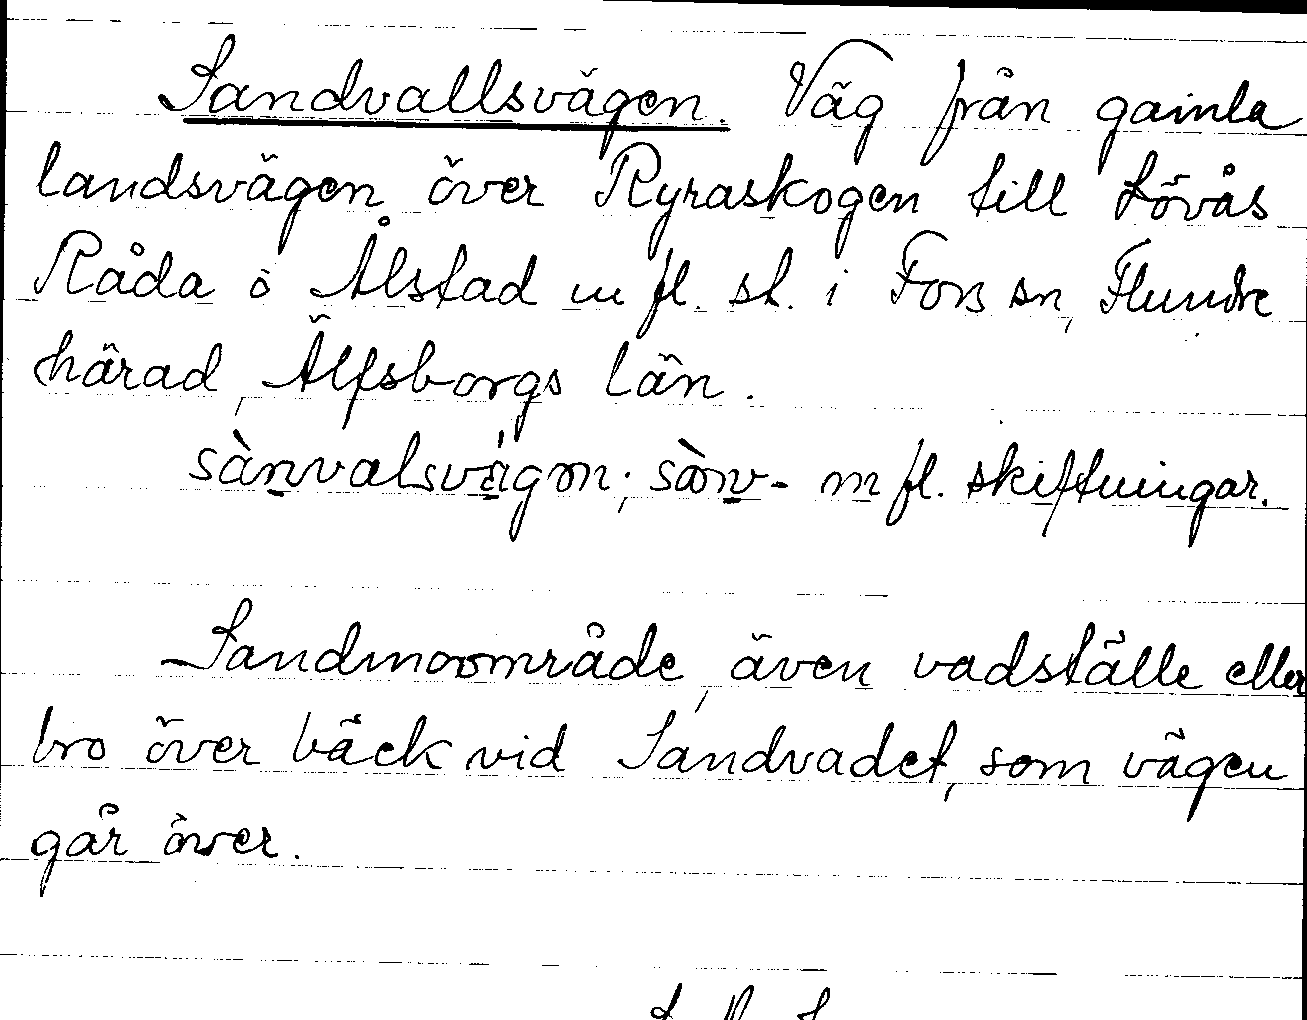 Sandvallsvägen. Väg från gamla
landsvägen över Ryraskogen till Lövås
Råda o Ålstad m fl. st. i Fors sn, Flundre
härad, Älfsborgs län.
sànvalsvägen; sànv- m fl. skiftningar.
Sandmoområde, även vadställe eller
bro över bäck vid Sandvadet, som vägen
går över.